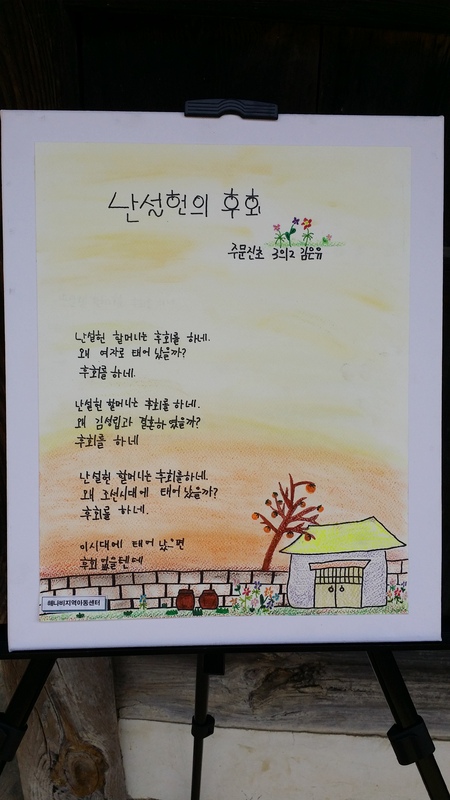 난설헌의 후회
주문진초 3의2 김은유
난설헌 할머니는 후회를 하네.
왜 여자로 태어 났을까?
후회를 하네.
난설헌 할머니는 후회를 하네.
왜 김성립과 결혼하였을까?
후회를 하네
난설헌 할머니는 후회를하네.
왜 조선시대에 태어 났을까?
후회를 하네.
이시대에 태어 났으면
후회 없을텐데
해나비지역아동센터